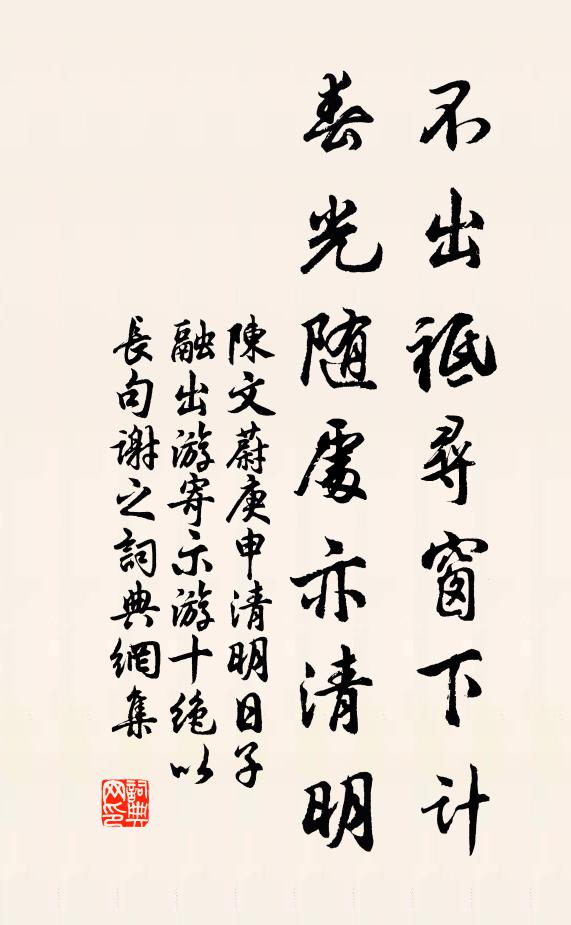 不出祗尋窗下计
春光随處亦清明
陳文蔚庚申清明日子
融出游寄示游十绝以
長句謝之詞典網集
詞典网印